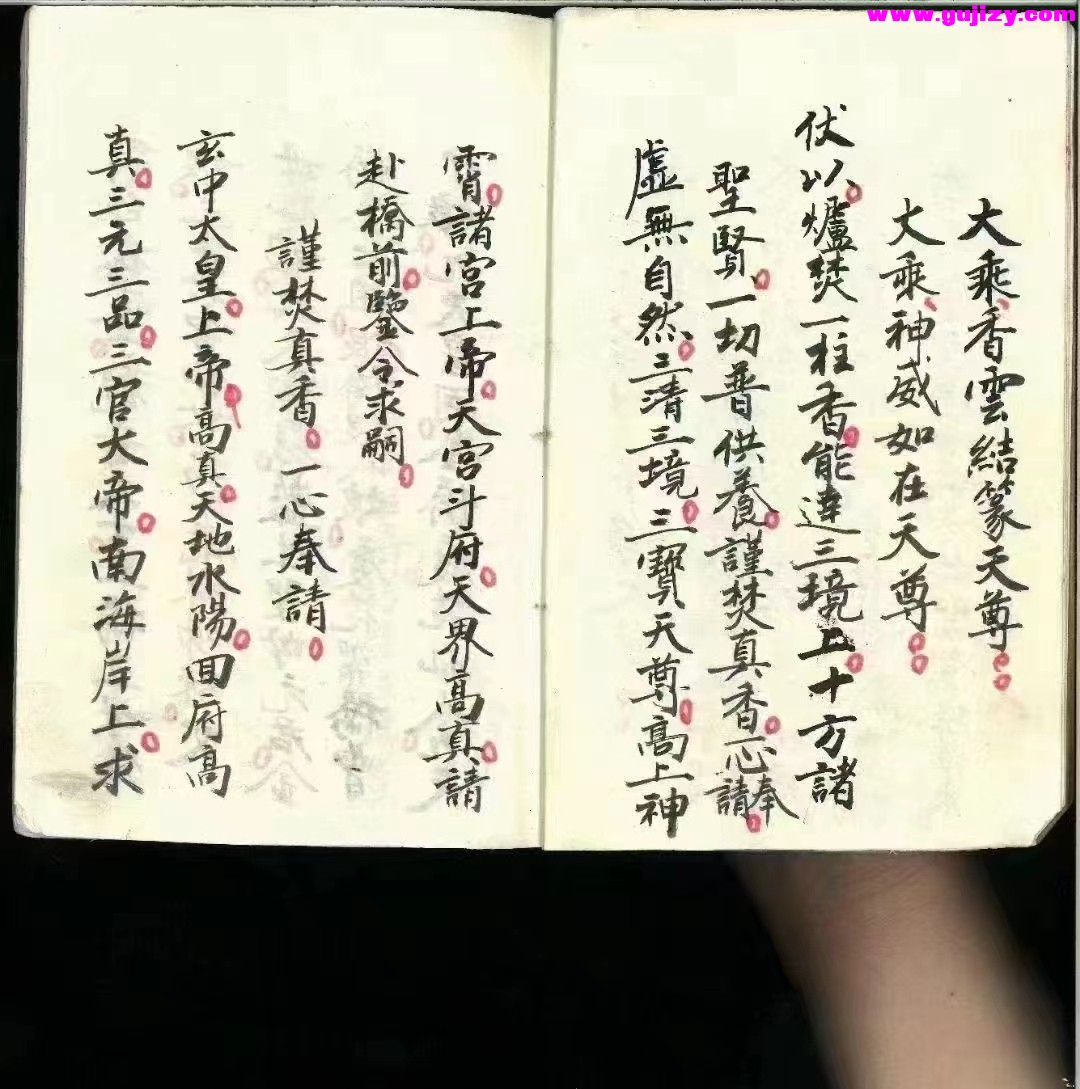 www.gujizy.com
大乘香雲結篆天尊
大乘神威如在天尊
伏以爐焚一柱香能達三境上十方諸
聖賢一切普供養謹焚真香一心奉請
虛無自然三清三境三寶天尊高上神
霄諸宮上帝天宮斗府天界高真請
赴橋前鑒令求嗣
謹焚真香一心奉請
玄中太皇上帝高真天地水陽回府高
真三元三品三官大帝南海岸上求